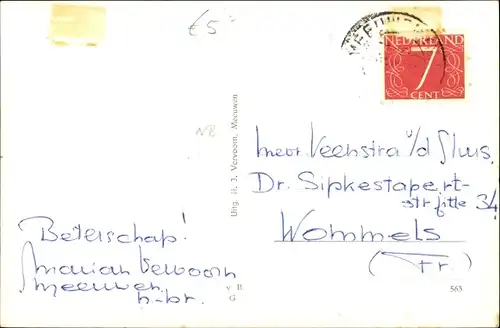 €5
NB
MEEUWEN
NEDERLAND
7
CENT
Uitg. H. J. Vervoorn, Meeuwen
mevr. Veenstra v/d Sluis
Dr. Sipkestapert-
str 34
Wommels
(Fr.)
Beterschap!
Marian Vervoorn
Meeuwen
n-br.
v B
G
563